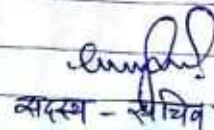 सदस्य - सचिव